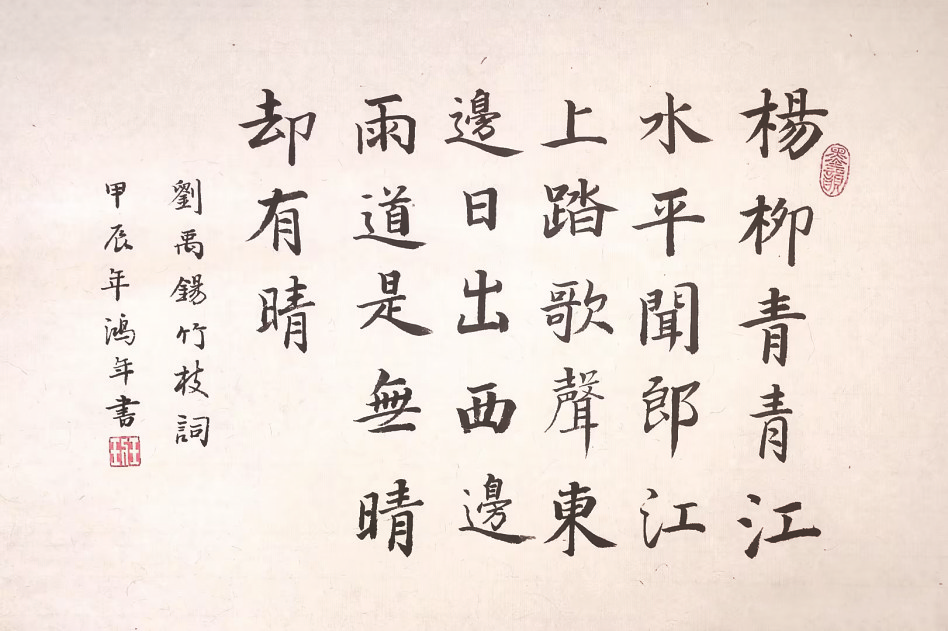 楊柳青青江
水平聞郎江
上踏歌聲東
邊日出西邊
雨道是無晴
却有晴
劉禹錫竹枝詞
甲辰年鴻年書